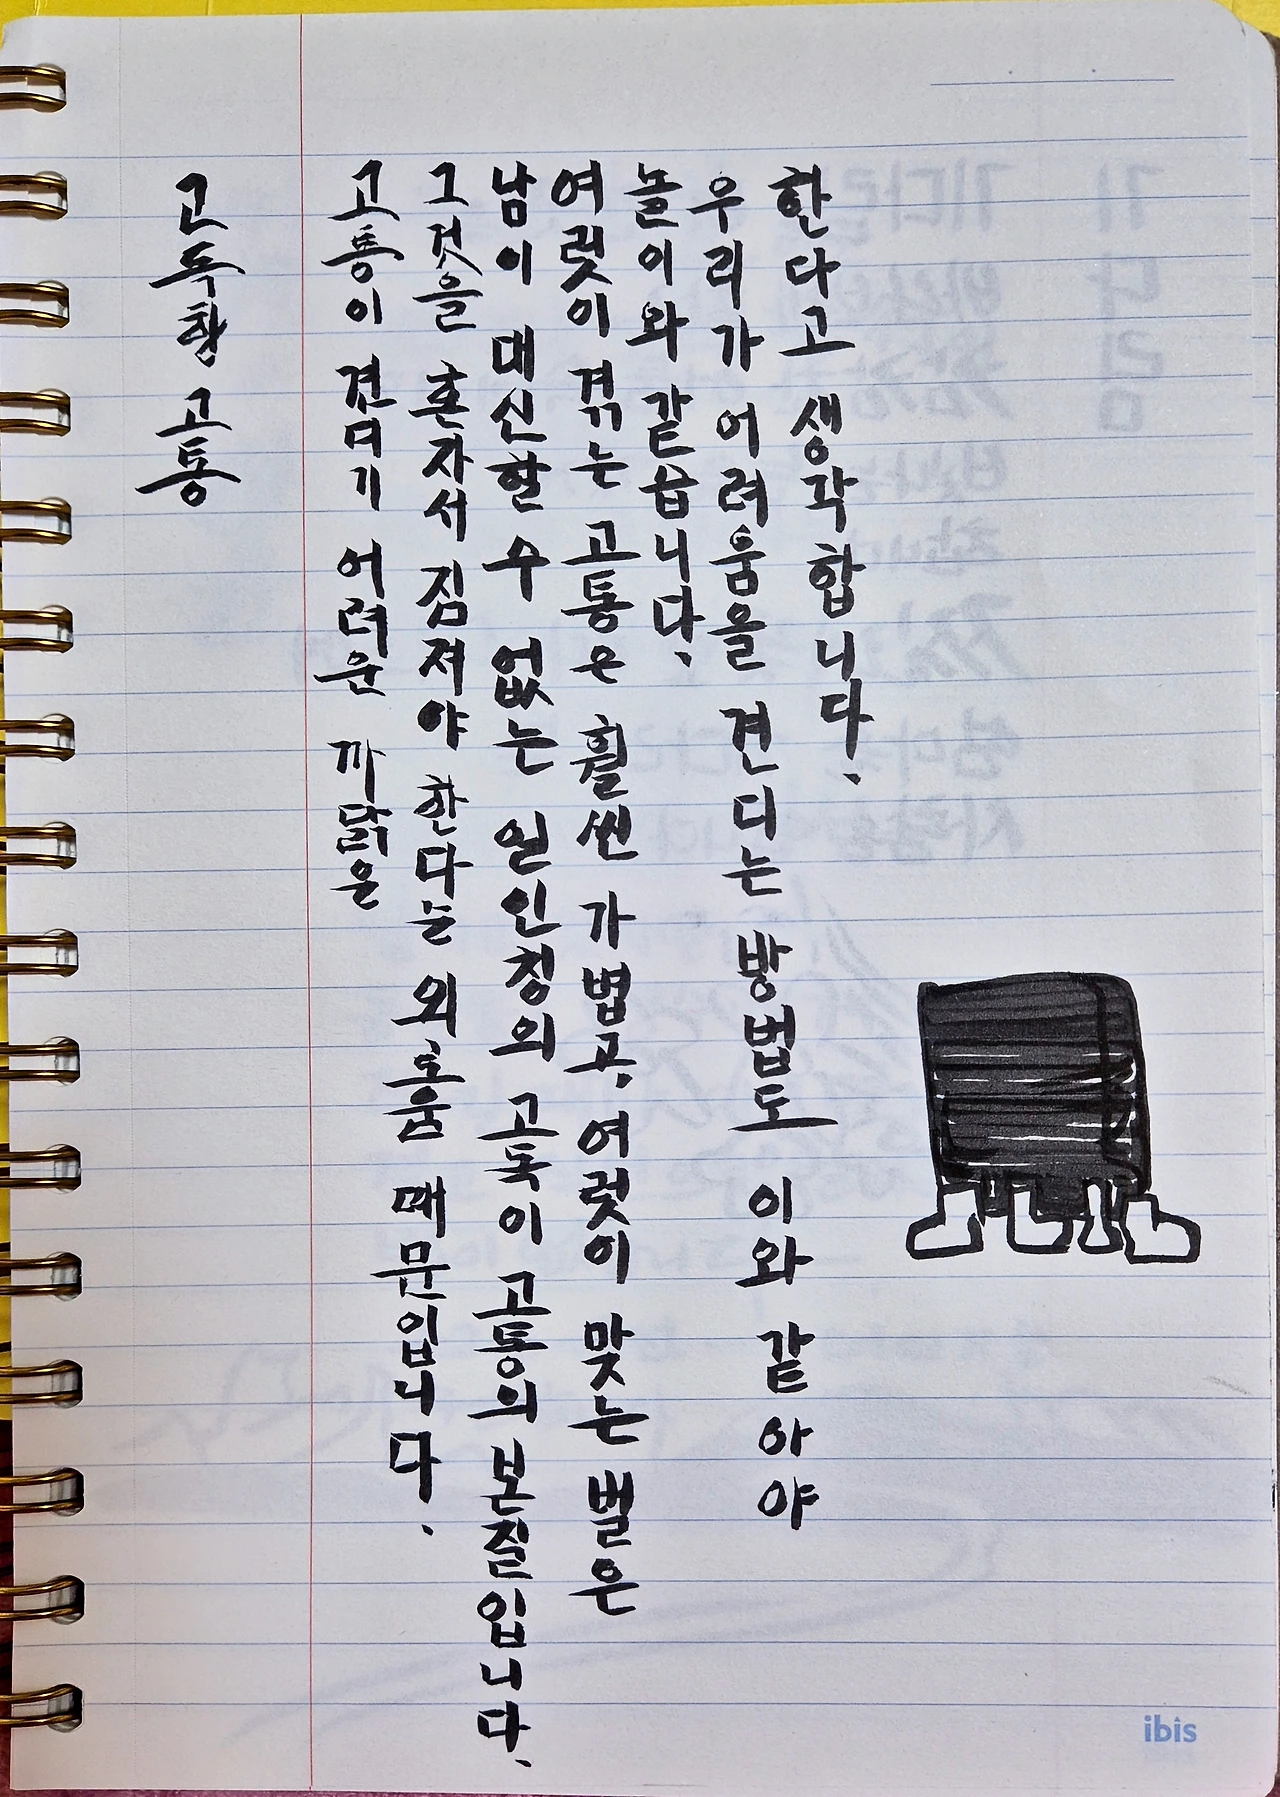 고독한 고통
고통이 견디기 어려운 까닭은
그것을 혼자서 짐져야 한다는 외로움 때문입니다.
남이 대신할 수 없는 일인칭의 고독이 고통의 본질입니다.
여럿이 겪는 고통은 훨씬 가볍고, 여럿이 맞는 벌은
놀이와 같습니다.
우리가 어려움을 견디는 방법도 이와 같아야
한다고 생각합니다.
ibis